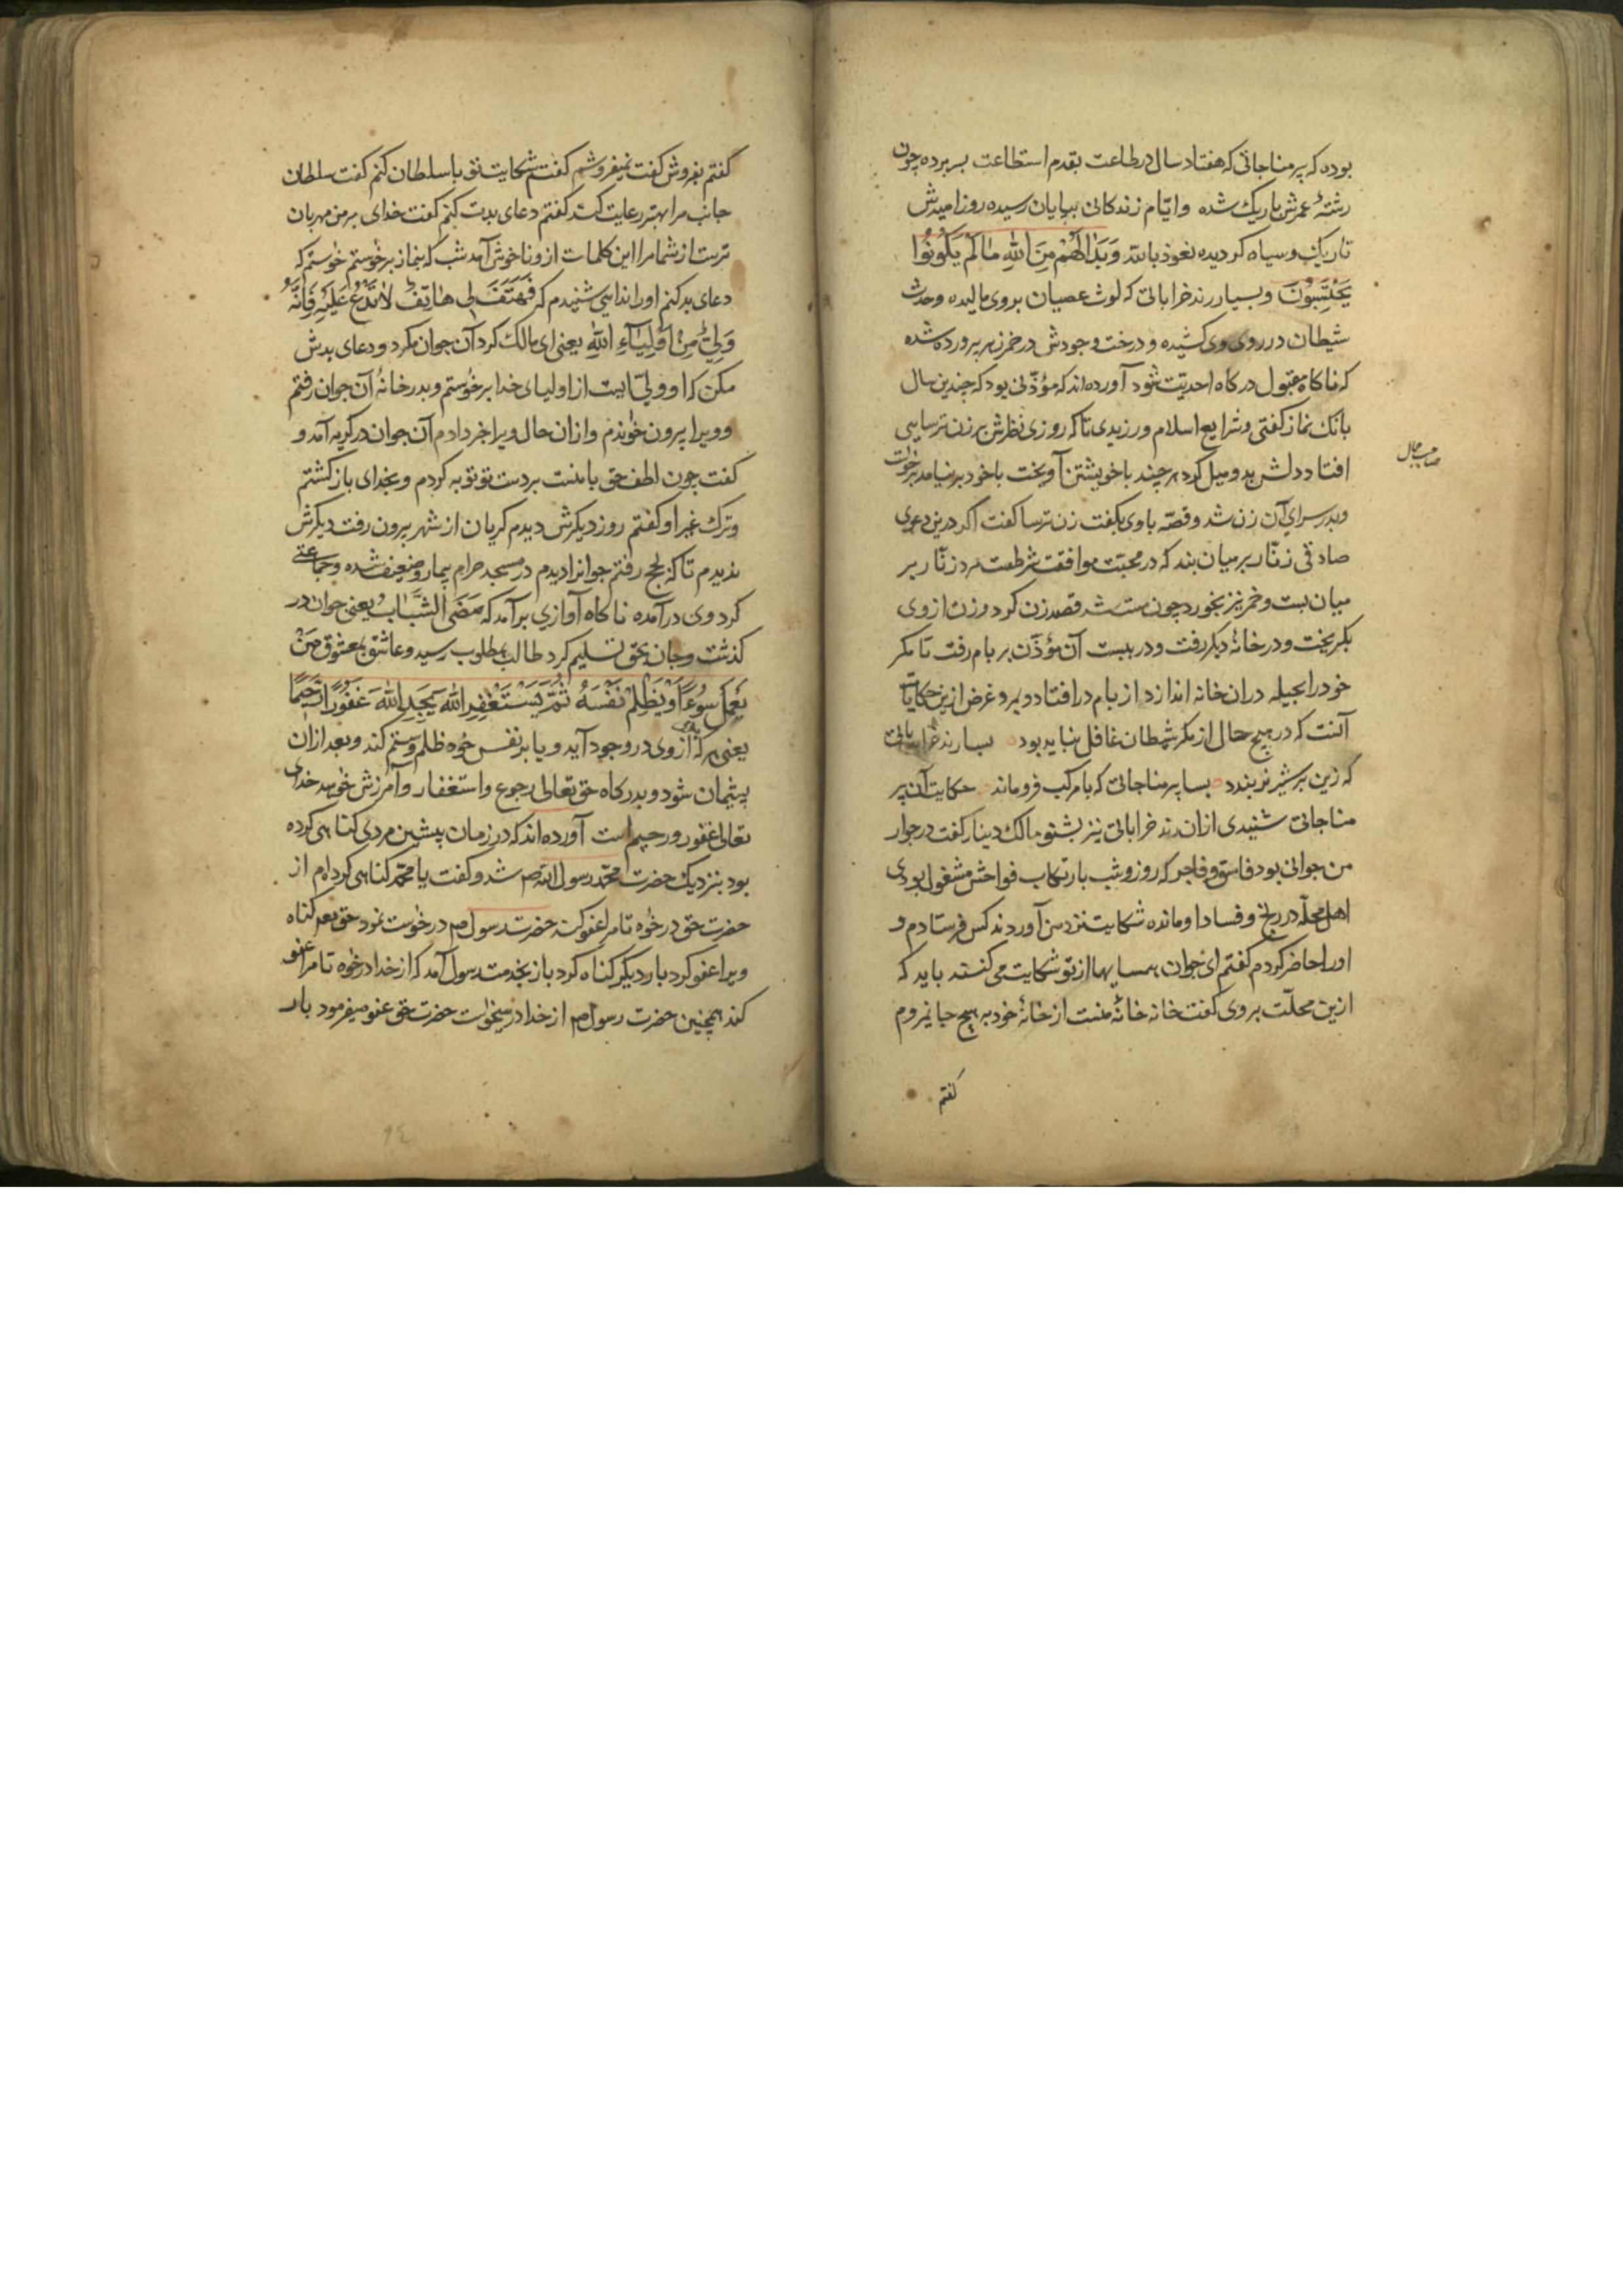 بوده که پیر مناجاتی که هفتاد سال در طاعت بقدم استطاعت بسر برده چون
رشتهٔ عمرش باریک شده و ایّام زندکانی بپایان رسیده روز امیدش
تاریک و سیاه کردیده نعوذ بالله وَبَدَا لَهُمْ مِنَ اللهِ مَا لَمْ یَکُونُوا
یَحْتَسِبُونَ و بسیار رند خراباتی که لوث عصیان بروی مالیده و حدث
شیطان در روی وی کشیده و درخت وجودش در خمر زهر پرورده شده
که ناکاه مقبول درکاه احدیّت شود آورده‌اند که مؤذّنی بود که چندین سال
بانک نماز کفتی و شرایع اسلام ورزیدی تا که روزی نظرش بر زن ترسایی
صاحب جمال
افتاد دلش بدو میل کرد هر چند با خویشتن آویخت با خود برنیامد برخواست
و بدر سرای آن زن شد و قصّه با وی بکفت زن ترسا کفت اکر درین دعوی
صادقی زنّار بر میان بند که در محبّت موافقت شرطست مرد زنّار بر
میان بست و خمر نیز بخورد چون مست شد قصد زن کرد و زن از وی
بکریخت و در خانهٔ دیکر رفت و در ببست آن مؤذّن بر بام رفت تا مکر
خود را بحیله دران خانه اندازد از بام در افتاد و بمرد غرض ازین حکایات
آنست که در هیچ حال از مکر شیطان غافل نباید بود بسا رند خراباتی
که زین بر شیر نر بندد بسا پیر مناجاتی که با مرکب فرو ماند حکایت آن پیر
مناجاتی شنیدی ازان رند خراباتی نیز بشنو مالک دینار کفت در جوار
من جوانی بود فاسق و فاجر که روز و شب بارتکاب فواحش مشغول بودی
اهل محلّه در رنج و فساد او مانده شکایت نزد من آوردند کس فرستادم و
او را حاضر کردم کفتم ای جوان همسایها از تو شکایت می‌کنند باید که
ازین محلّت بروی کفت خانه خانهٔ منست از خانهٔ خود به هیچ جا نمیروم
کفتم
کفتم بفروش کفت نمیفروشم کفتم شکایت تو با سلطان کنم کفت سلطان
جانب مرا بهتر رعایت کند کفتم دعای بدت کنم کفت خدای بر من مهربان
ترست از شما مرا این کلمات ازو ناخوش آمد شب که بنماز برخواستم خواستم که
دعای بد کنم او را ندایی شنیدم که فَهَتَفَ بِی هَاتِفٌ لاتَدْعُ عَلَیْهِ فَاِنَّهُ
وَلِیٌّ مِنْ اَوْلِیَآءِ اللهِ یعنی ای مالک کرد آن جوان مکرد و دعای بدش
مکن که او ولیّ ایست از اولیای خدا برخواستم و بدر خانهٔ آن جوان رفتم
و ویرا بیرون خواندم و ازان حال ویرا خبر دادم آن جوان در کریه آمد و
کفت چون لطف حق با منست بر دست تو توبه کردم و بخدای باز کشتم
و ترک غیر او کفتم روز دیکرش دیدم کریان از شهر بیرون رفت دیکرش
ندیدم تا که بحج رفتم جوانرا دیدم در مسجد حرام بیمار و ضعیف شده و جماعتی
کرد وی درآمده ناکاه آوازی برآمد که مَضَی الشَّبَابُ یعنی جوان در
کذشت و جان بحق تسلیم کرد طالب بمطلوب رسید و عاشق بمعشوق مَنْ
یَعْمَلْ سُوءًا اَوْ یَظْلِمْ نَفْسَهُ ثُمَّ یَسْتَغْفِرِ اللهَ یَجِدِ اللهَ غَفُورًا رَحِیمًا
یعنی هر که از وی بدی در وجود آید و یا بر نفس خود ظلم و ستم کند و بعد ازان
پشیمان شود و بدرکاه حق تعالی رجوع و استغفار و آمرزش خواهد خدای
تعالی غفور و رحیم است آورده‌اند که در زمان پیشین مردی کناهی کرده
بود بنزدیک حضرت محمّد رسول الله صم شد و کفت یا محمّد کناهی کرده‌ام از
حضرت حق درخواه تا مرا عفو کند حضرت رسول صم درخواست نمود حق تعم کناه
ویرا عفو کرد بار دیکر کناه کرد باز بخدمت رسول آمد که از خدا درخواه تا مرا عفو
کند همچنین حضرت رسول صم از خدا درمیخواست حضرت حق عفو میفرمود بار
٩٤